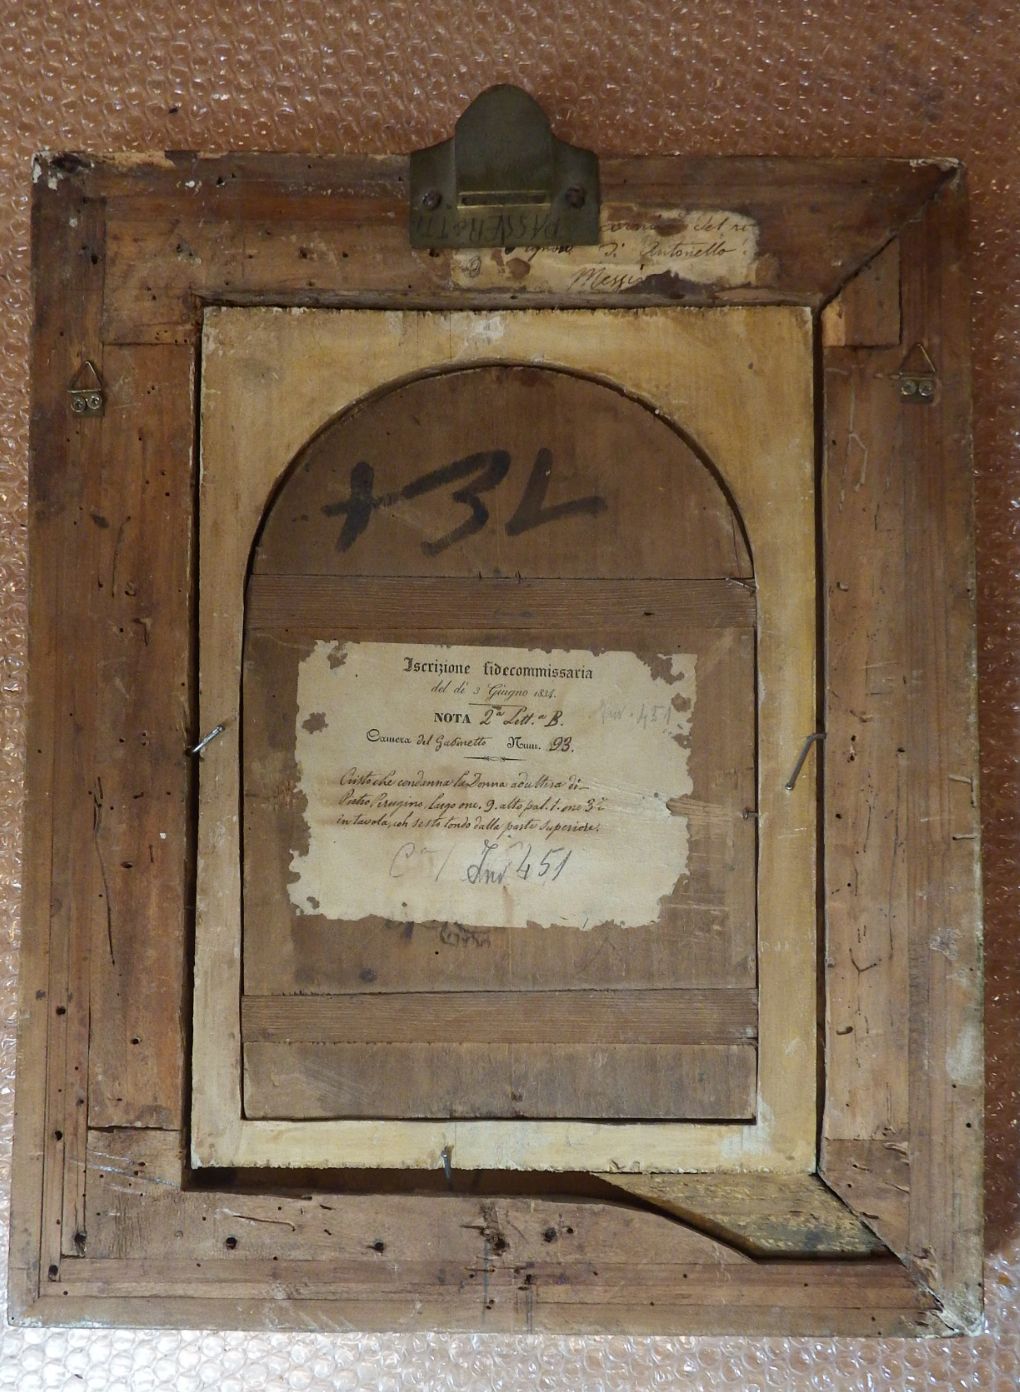 PASSEROTTI
cornice del ri
di Antonello
Messi
+3L
Iscrizione fidecommissaria
del dì 3 Giugno 1834.
NOTA 2ª Lett.ª B.
Inv. 451
Camera del Gabinetto Num. 93.
Cristo che condanna la Donna adultera di
Pietro Perugino, largo onc. 9. alto pal. 1. onc 3½
in tavola, con sesto tondo dalla parte superiore.
Inv 451